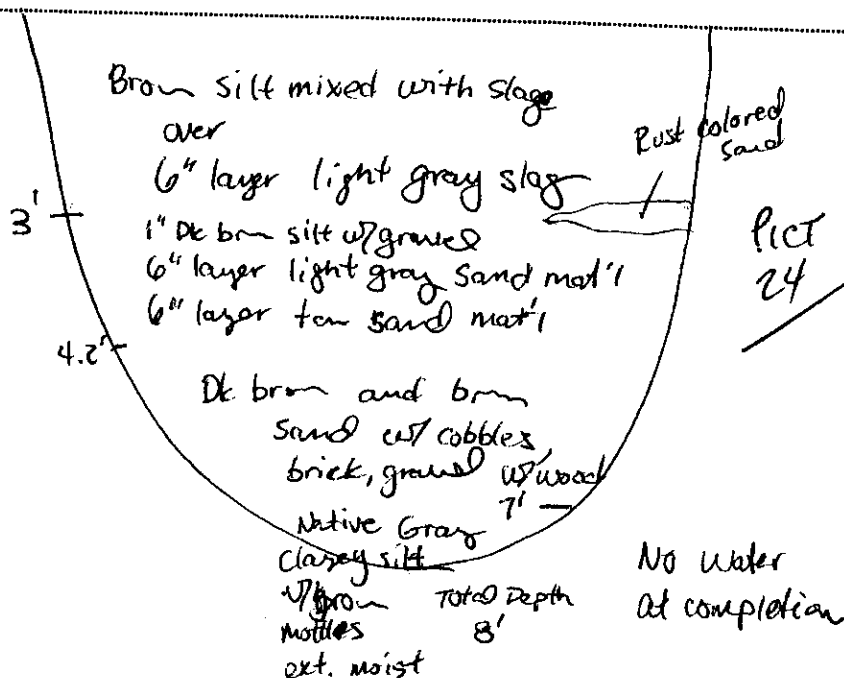 Brown silt mixed with slag
over
6" layer light gray slag
Rust colored
sand
3'
1" Dk brn silt w/ gravel
6" layer light gray sand mat'l
6" layer tan sand mat'l
PICT
24
4.2'
Dk brown and brn
sand w/ cobbles,
brick, gravel w/ wood
7'
Native Gray
clayey silt
w/ brown
mottles
ext. moist
Total Depth
8'
No water
at completion